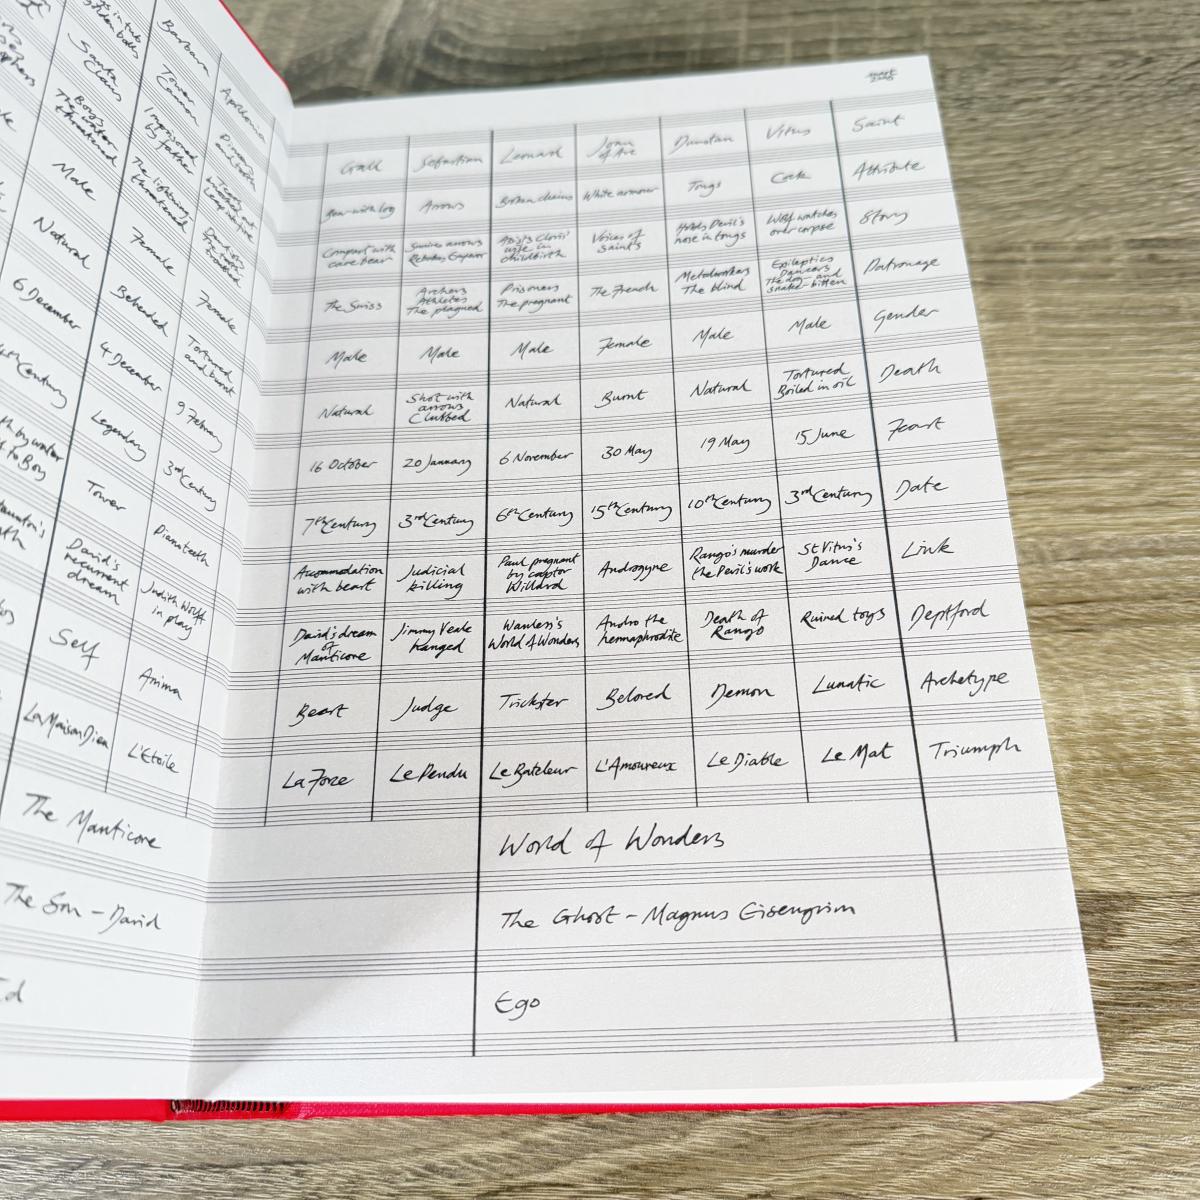 Barbara
Apollonia
Santa
Claus
Tower
Cannon
Boys
The water
threatened
Imprisoned
by father
Male
The lightning
threatened
Natural
Female
6 December
Beheaded
Female
4th Century
4 December
Tortured
and burnt
Legendary
9 February
Tower
3rd Century
David's
recurrent
dream
Piano teeth
Self
Judith Wolff
in play
Anima
La Maison Dieu
L'Etoile
The Manticore
The Son – David
Id
Gall
Sebastian
Leonard
Joan
of Arc
Dunstan
Vitus
Saint
Bear with log
Arrows
Broken chains
White armour
Tongs
Cock
Attribute
Compact with
cave bear
Survives arrows
Rebukes Emperor
Assists Clovis'
wife in
childbirth
Voices of
saints
Holds Devil's
nose in tongs
Wolf watches
over corpse
Story
The Swiss
Archers
Athletes
The plagued
Prisoners
The pregnant
The French
Metalworkers
The blind
Epileptics
Dancers
The dog- and
snake-bitten
Patronage
Male
Male
Male
Female
Male
Male
Gender
Natural
Shot with
arrows
Clubbed
Natural
Burnt
Natural
Tortured
Boiled in oil
Death
16 October
20 January
6 November
30 May
19 May
15 June
Feast
7th Century
3rd Century
6th Century
15th Century
10th Century
3rd Century
Date
Accommodation
with beast
Judicial
killing
Paul pregnant
by captor
Willard
Androgyne
Rango's murder
the Devil's work
St Vitus's
Dance
Link
David's dream
of
Manticore
Jimmy Veale
hanged
Wanless's
World of Wonders
Andro the
hermaphrodite
Death of
Rango
Ruined toys
Deptford
Beast
Judge
Trickster
Beloved
Demon
Lunatic
Archetype
La Force
Le Pendu
Le Bateleur
L'Amoureux
Le Diable
Le Mat
Triumph
World of Wonders
The Ghost – Magnus Eisengrim
Ego